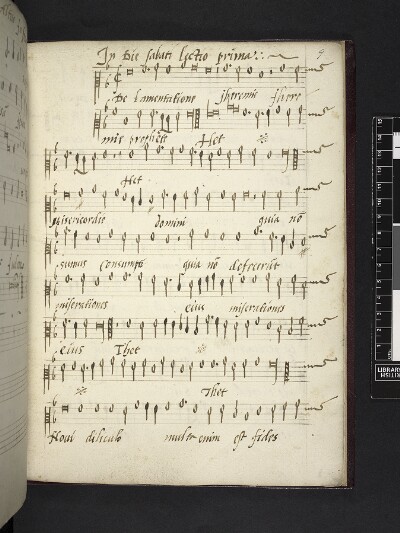 In die sabati lectio prima
9
De lamentatione Iheremie Ihere
mie prophete Het
Het
Misericordie domini quia nõ
sumus consumpti quia nõ defecerũt
miserationes eius miserationes
eius Thet
Thet
Noui diliculo multa enim est fides
LIBRARY